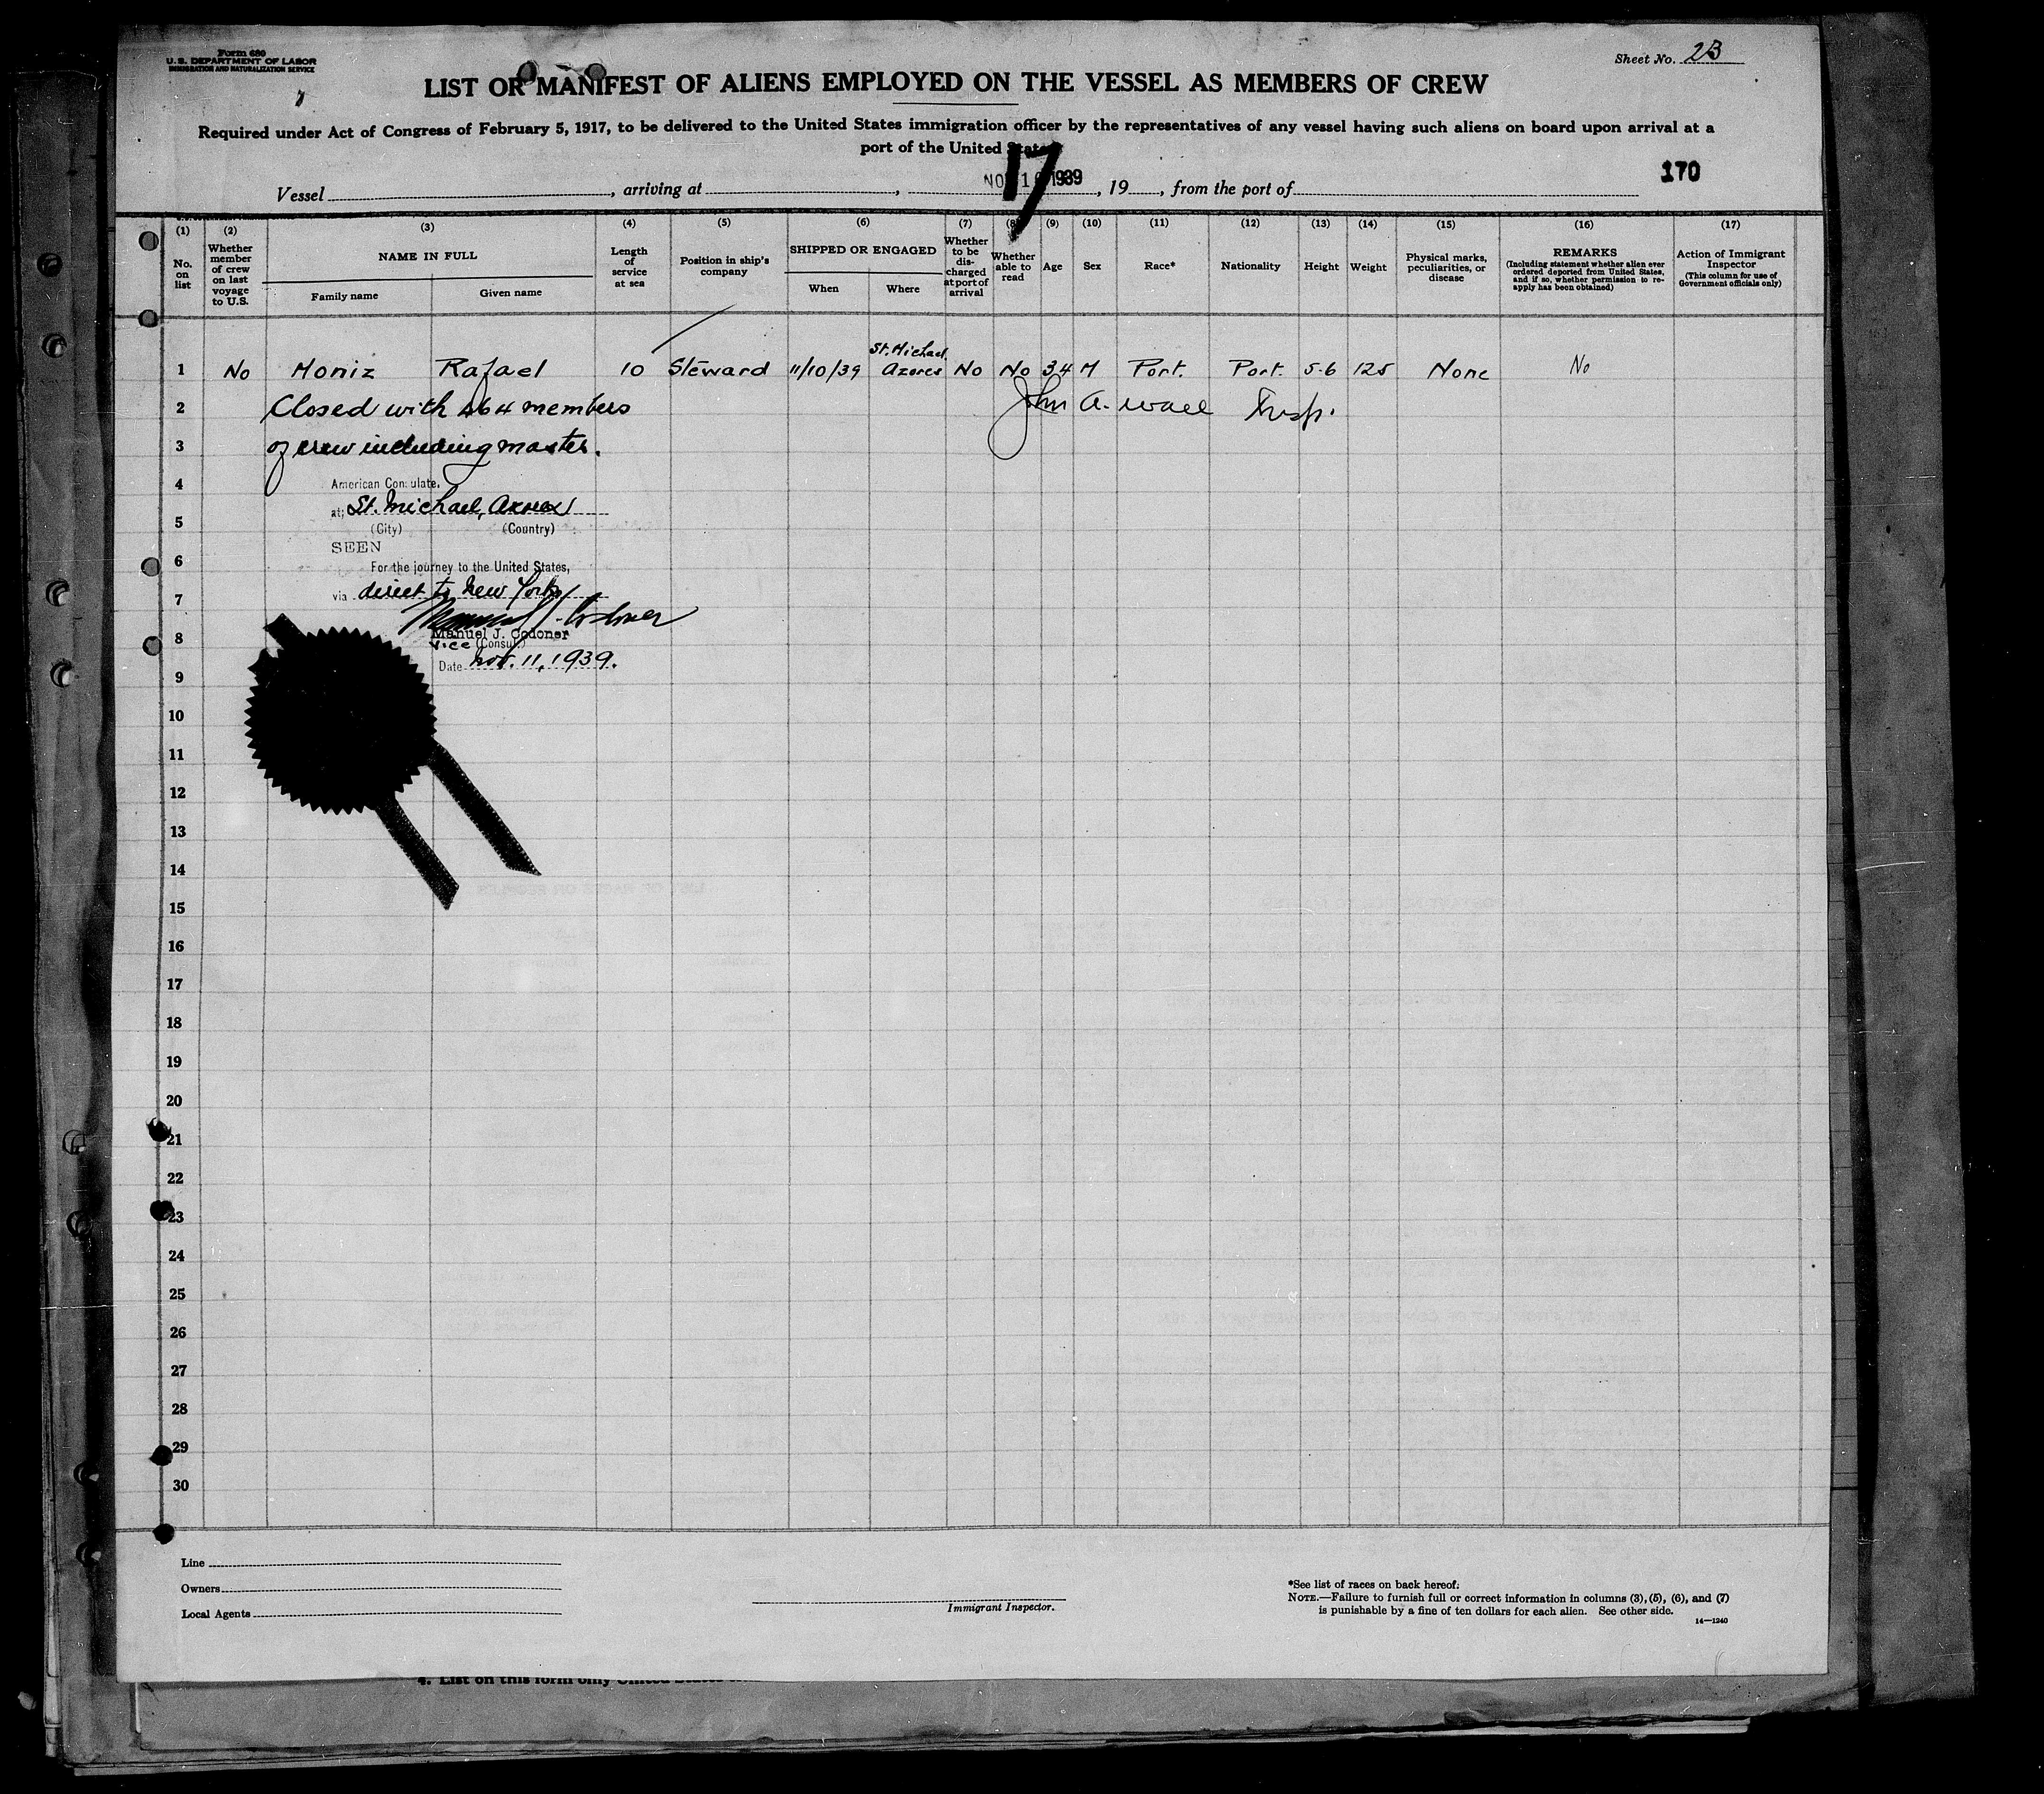 Form 680
U.S. DEPARTMENT OF LABOR
IMMIGRATION AND NATURALIZATION SERVICE
Sheet No. 2B
LIST OR MANIFEST OF ALIENS EMPLOYED ON THE VESSEL AS MEMBERS OF CREW
Required under Act of Congress of February 5, 1917, to be delivered to the United States immigration officer by the representatives of any vessel having such aliens on board upon arrival at a
port of the United States
17
170
Vessel , arriving at , 1939 , 19 , from the port of
(1) (2) (3) (4) (5) (6) (7) (8) (9) (10) (11) (12) (13) (14) (15) (16) (17)
No. on list
Whether member of crew on last voyage to U.S.
NAME IN FULL
Family name Given name
Length of service at sea
Position in ship's company
SHIPPED OR ENGAGED
When Where
Whether to be discharged at port of arrival
Whether able to read
Age
Sex
Race*
Nationality
Height
Weight
Physical marks, peculiarities, or disease
REMARKS
(Including statement whether alien ever ordered deported from United States, and if so, whether permission to re-apply has been obtained)
Action of Immigrant Inspector
(This column for use of Government officials only)
St. Michael.
1 No Moniz Rafael 10 Steward 11/10/39 Azores No No 34 M Port. Port. 5-6 125 None No
2 Closed with 464 members John A. Wall Insp.
3 of crew including master.
4 American Consulate,
at; St. Michael, Azores
5 (City) (Country)
SEEN
6 For the journey to the United States,
7 via direct to New York
Manuel J. Codoner
8 Manuel J. Codoner
Vice (Consul.)
Date Nov. 11, 1939.
9
10
11
12
13
14
15
16
17
18
19
20
21
22
23
24
25
26
27
28
29
30
Line
Owners
Local Agents
Immigrant Inspector.
*See list of races on back hereof.
NOTE.—Failure to furnish full or correct information in columns (3), (5), (6), and (7)
is punishable by a fine of ten dollars for each alien. See other side.
14—1240
4. List on this form only United States